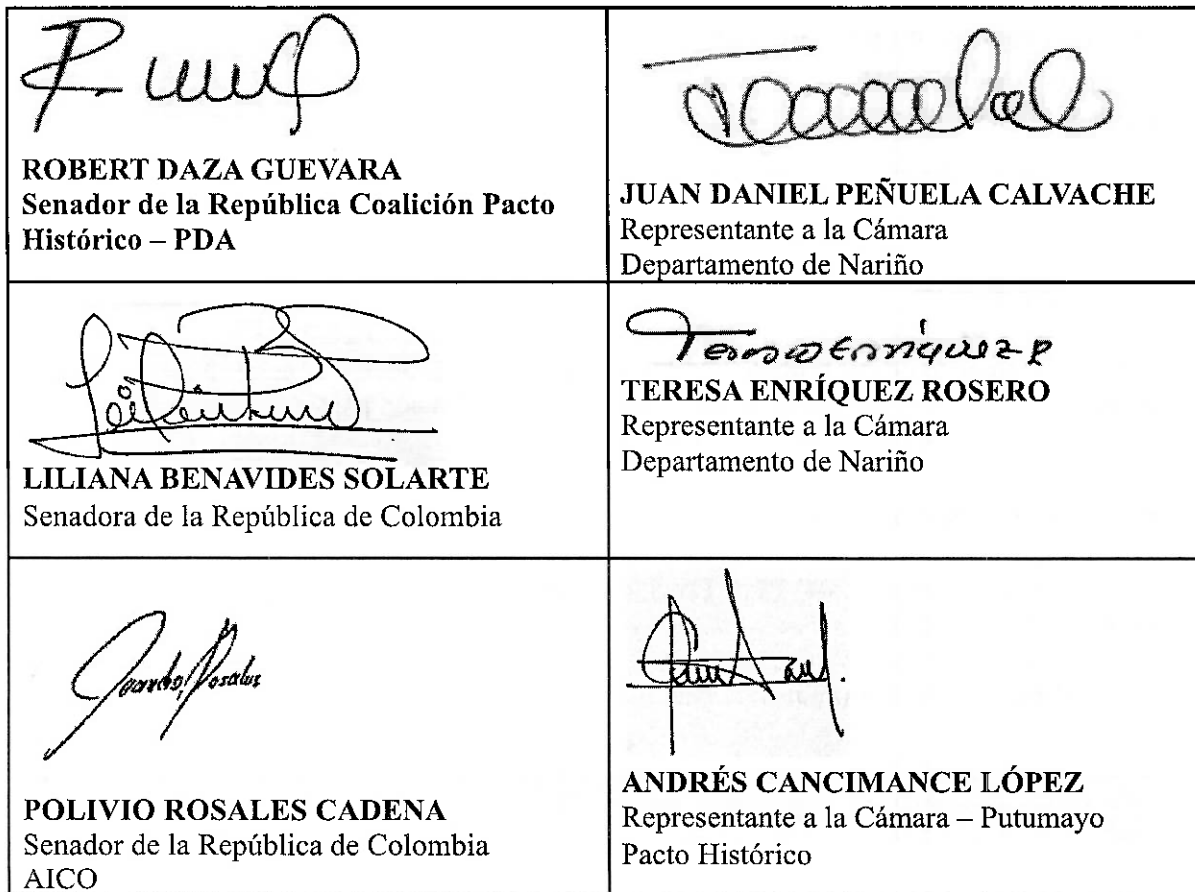 ROBERT DAZA GUEVARA
Senador de la República Coalición Pacto
Histórico – PDA
JUAN DANIEL PEÑUELA CALVACHE
Representante a la Cámara
Departamento de Nariño
Teresa Enríquez R
LILIANA BENAVIDES SOLARTE
Senadora de la República de Colombia
TERESA ENRÍQUEZ ROSERO
Representante a la Cámara
Departamento de Nariño
POLIVIO ROSALES CADENA
Senador de la República de Colombia
AICO
ANDRÉS CANCIMANCE LÓPEZ
Representante a la Cámara – Putumayo
Pacto Histórico